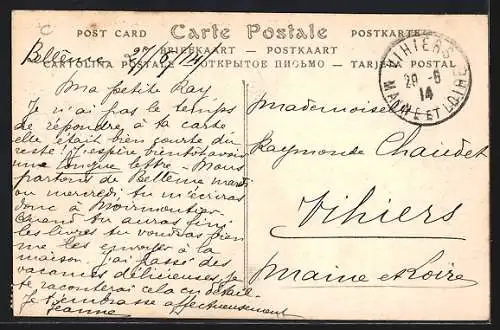 C
POST CARD Carte Postale POSTKARTE
BRIEFKAART — POSTKAART
CARTOLINA POSTALE ОТКРЫТОЕ ПИСЬМО — TARJETA POSTAL
Bellême 27/6/14
VIHIERS
29 -6
14
MAINE ET LOIRE
Ma petite Ray
Je n'ai pas le temps
de répondre à ta carte
elle était bien courte du
reste ! j'espère bientôt avoir
une longue lettre. Nous
partons de Bellême mardi
ou mercredi tu m'écriras
donc à Noirmoutier.
Quand tu auras fini
les livres tu voudras bien
me les envoyer à la
maison. J'ai passé des
vacances délicieuses, je
te raconterai cela en détail.
Je t'embrasse affectueusement
Jeanne
Mademoiselle
Raymonde Chaudet
Vihiers
Maine et Loire